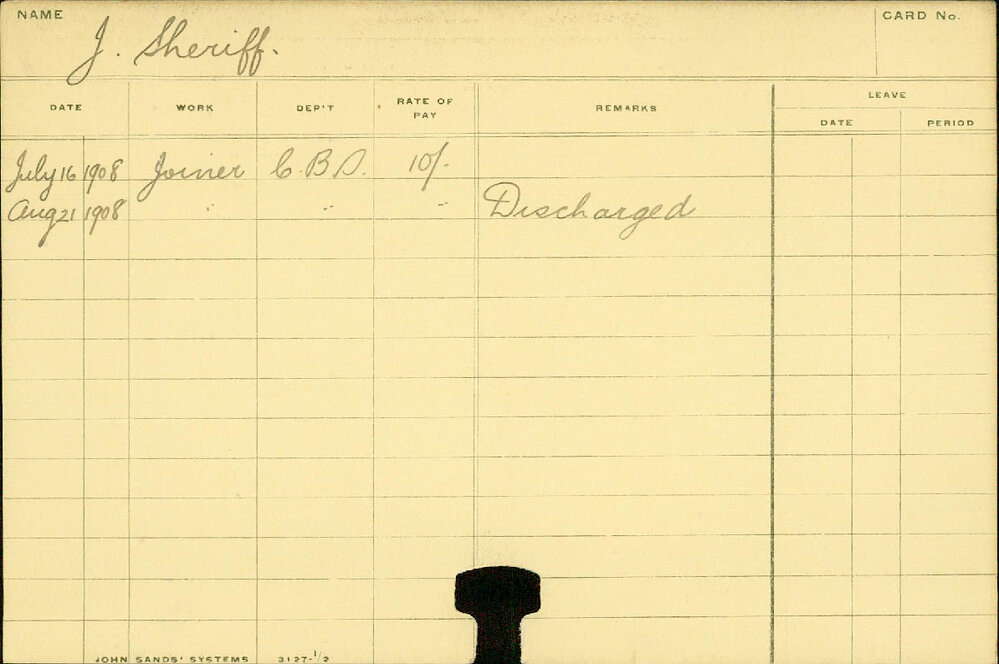 NAME J. Sheriff. CARD No.
DATE WORK DEP'T RATE OF PAY REMARKS LEAVE
DATE PERIOD
July 16 1908 Joiner C.B.D. 10/-
Aug 21 1908 " " " Discharged
JOHN SANDS' SYSTEMS 3127-1/2